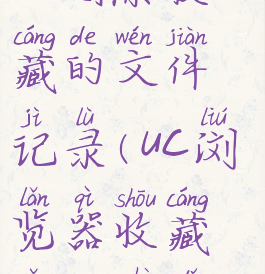 cáng de wén jiàn
藏的文件
jì lù liú
记录(UC浏
lǎn qì shōu cáng
览器收藏